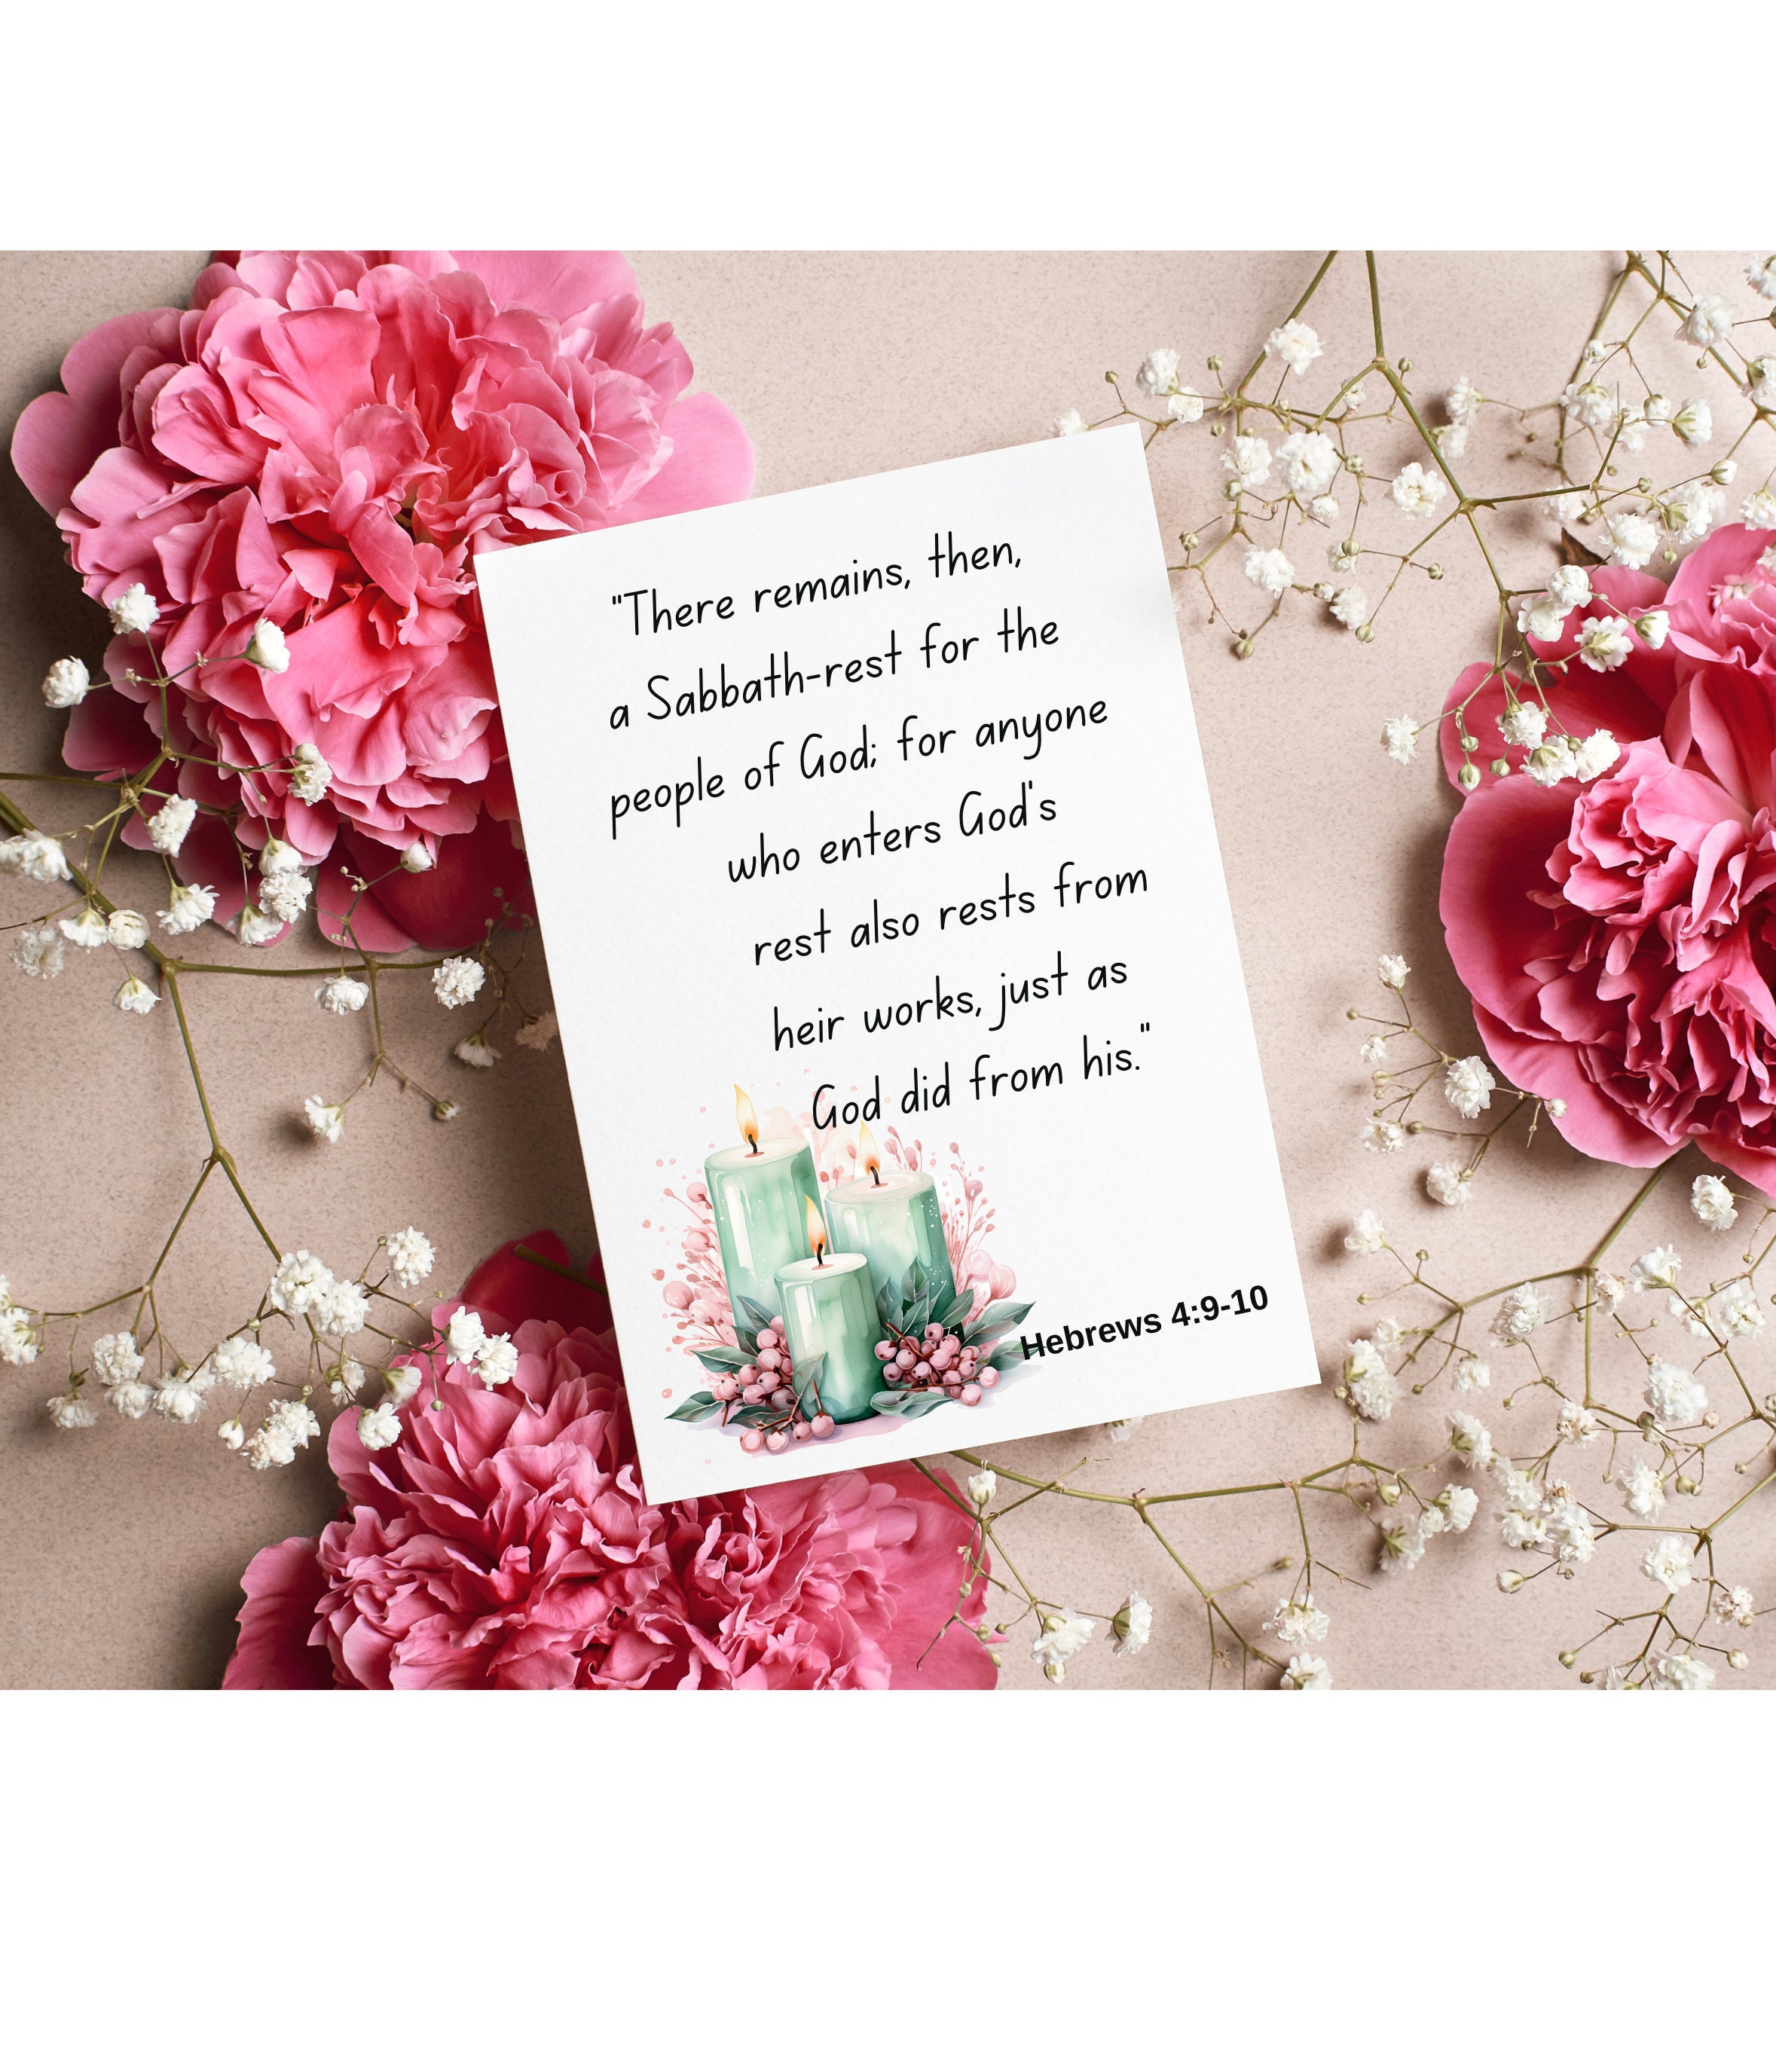 "There remains, then,
a Sabbath-rest for the
people of God; for anyone
who enters God's
rest also rests from
heir works, just as
God did from his."
Hebrews 4:9-10